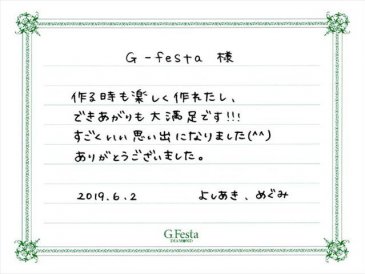 G-festa 様
作る時も楽しく作れたし、
できあがりも大満足です!!!
すごくいい思い出になりました(^^)
ありがとうございました。
2019.6.2 よしあき、めぐみ
G.Festa
DIAMOND